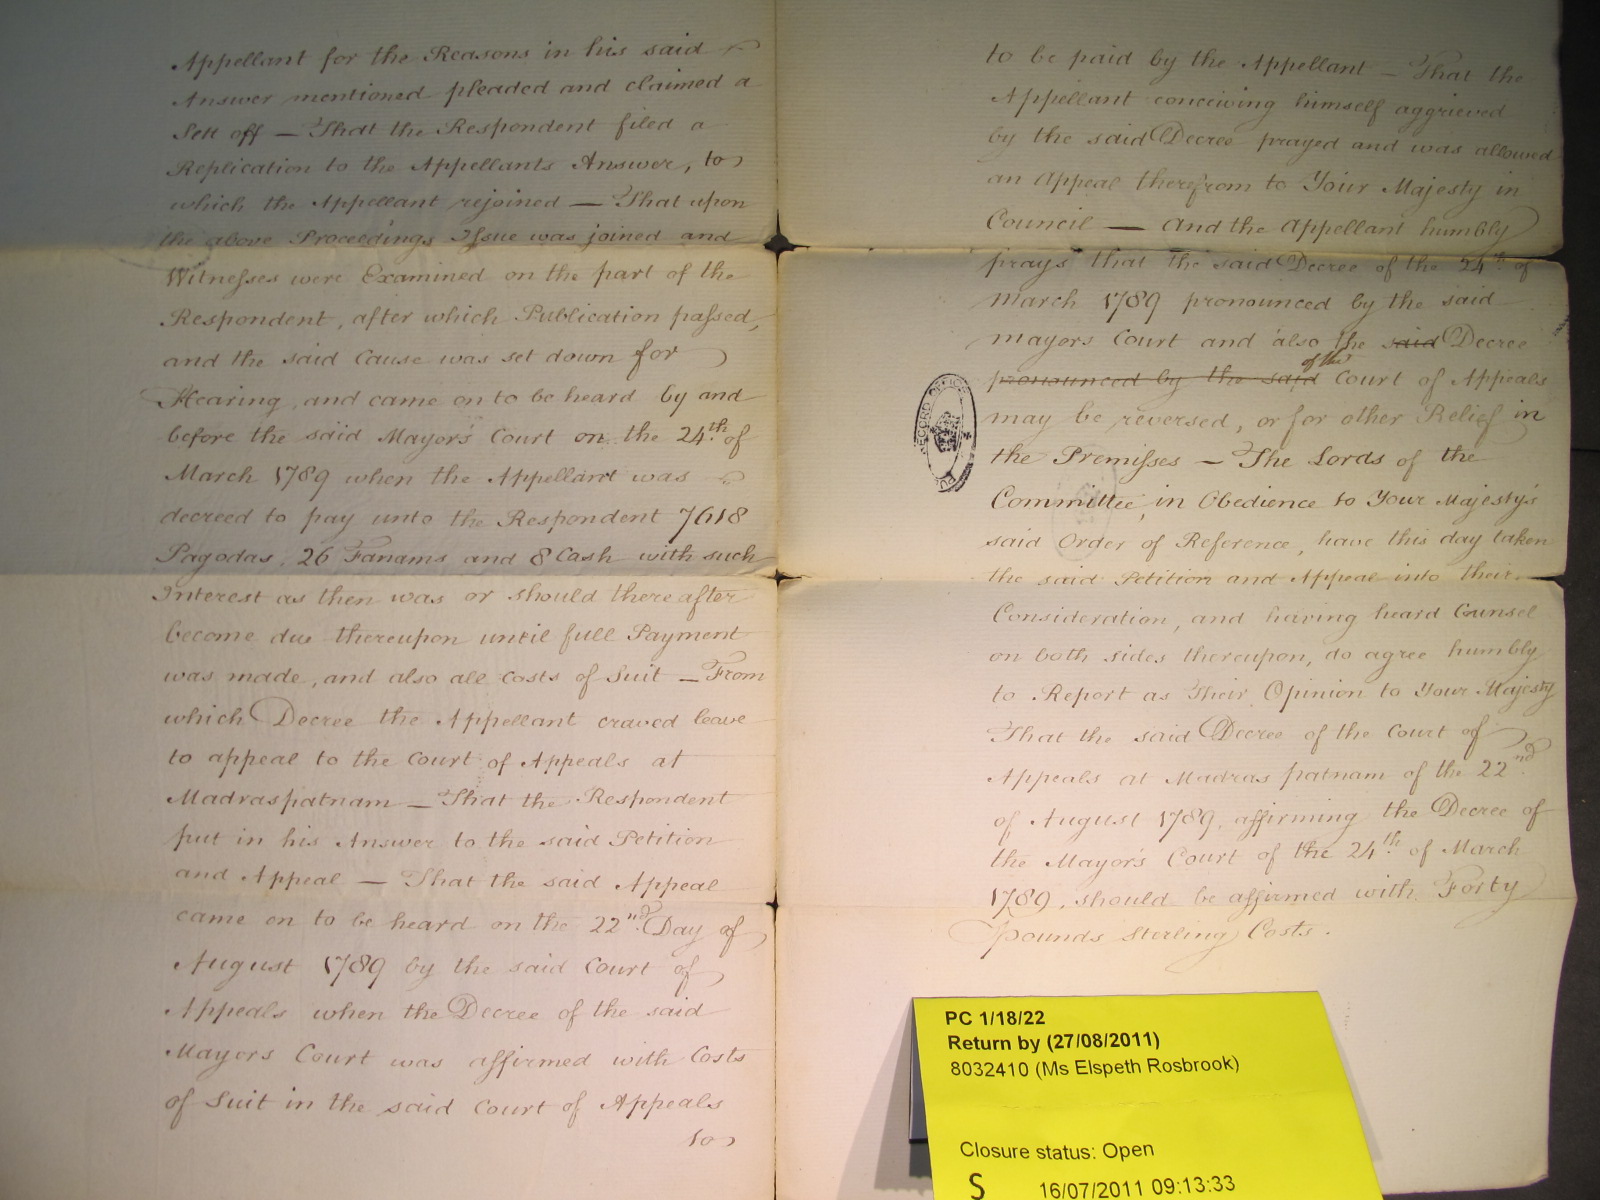 Appellant for the Reasons in his said
Answer mentioned pleaded and claimed a
Sett off — That the Respondent filed a
Replication to the Appellants Answer, to
which the Appellant rejoined — That upon
the above Proceedings Issue was joined and
Witnesses were Examined on the part of the
Respondent, after which Publication passed,
and the said Cause was set down for
Hearing, and came on to be heard by and
before the said Mayor's Court on the 24th of
March 1789 when the Appellant was
decreed to pay unto the Respondent 7618
Pagodas, 26 Fanams and 8 Cash with such
Interest as then was or should thereafter
become due thereupon until full Payment
was made, and also all Costs of Suit — From
which Decree the Appellant craved leave
to appeal to the Court of Appeals at
Madraspatnam — That the Respondent
put in his Answer to the said Petition
and Appeal — That the said Appeal
came on to be heard on the 22nd Day of
August 1789 by the said Court of
Appeals when the Decree of the said
Mayors Court was affirmed with Costs
of Suit in the said Court of Appeals
to
to be paid by the Appellant — That the
Appellant conceiving himself aggrieved
by the said Decree prayed and was allowed
an Appeal therefrom to Your Majesty in
Council — And the Appellant humbly
prays that the said Decree of the 24th of
March 1789 pronounced by the said
mayors Court and also the said Decree
of the
pronounced by the said Court of Appeals
may be reversed, or for other Relief in
the Premisses — The Lords of the
Committee, in Obedience to Your Majesty's
said Order of Reference, have this day taken
the said Petition and Appeal into their
Consideration, and having heard Counsel
on both sides thereupon, do agree humbly
to Report as Their Opinion to Your Majesty
That the said Decree of the Court of
Appeals at Madraspatnam of the 22nd
of August 1789, affirming the Decree of
the Mayor's Court of the 24th of March
1789, should be affirmed with Forty
Pounds Sterling Costs.
RECORD OFFICE
PC 1/18/22
Return by (27/08/2011)
8032410 (Ms Elspeth Rosbrook)
Closure status: Open
S 16/07/2011 09:13:33